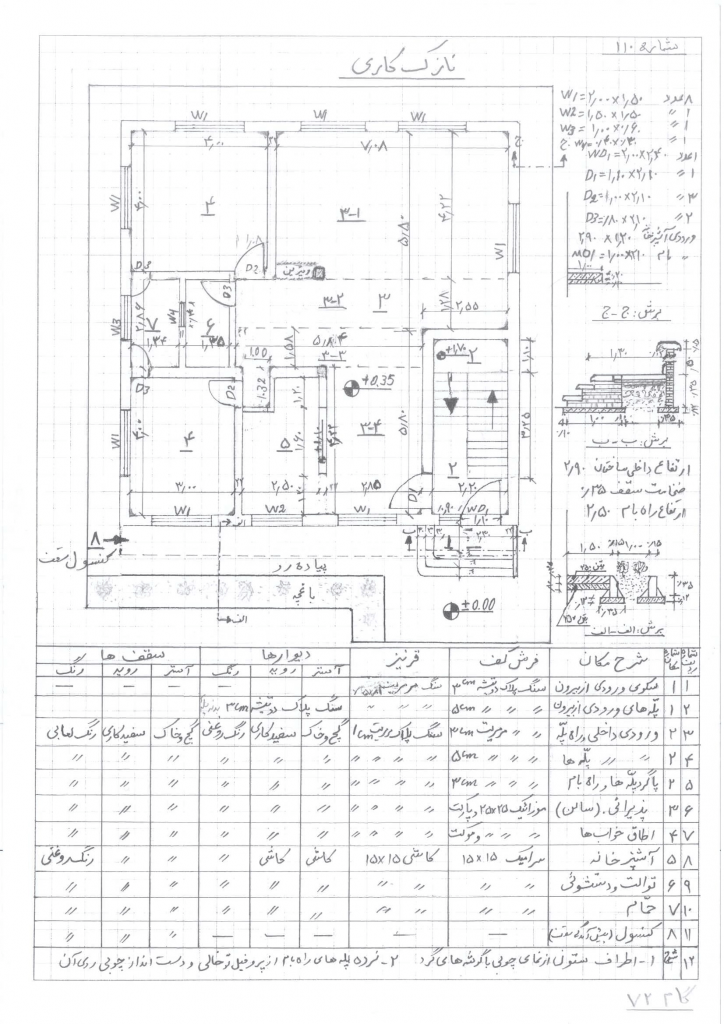 شماره ۱۱۰
نازک کاری
W1 = ۲,۰۰ × ۱,۵۰ ۸ عدد
W2 = ۱,۵۰ × ۱,۵۰ ۱ 〃
W3 = ۱,۰۰ × ۰,۶۰ ۱ 〃
WD1 = ۲,۰۰ × ۲,۴۰ ۱ عدد
D1 = ۱,۱۰ × ۲,۱۰ ۱ 〃
D2 = ۱,۰۰ × ۲,۱۰ ۳ 〃
D3 = ۰,۸۰ × ۲,۱۰ ۲ 〃
۲,۹۰ × ۱,۲۰
MD1 = ۱,۰۰ × ۲,۱۰ 〃 بام
برش: ج - ج
برش: ب - ب
ارتفاع داخلی ساختمان ۲,۹۰
ضخامت سقف ۰,۳۵
ارتفاع راه بام ۲,۵۰
برش: الف - الف
W1 W1 W1
۴,۰۰ ۷,۰۸
۴ ۳-۱ ۵,۵۰ ۴,۲۲
W1 ۴,۰۰ W1
۱,۰۸ D2
ویترین
D3 D3
۳-۲ ۳ ۱,۲۸ ۲,۵۵
W3 ۲,۸۶ ۷ W4 ۶
۱,۳۴ ۱,۳۵ ۵,۸۴
1.00 ۱,۵۸ ۳-۳
+۱,۷۰ ۲ ۱,۱۰
D3 D2 1.32 ۱,۲۰ +0.35
W1 ۴,۰۰ ۴ ۵ ۱,۶۰ ۳-۴ ۵,۸۰ ۲ ۳,۲۵
۳,۰۰ ۲,۵۰ ۲,۸۵ D1 ۲,۲۰
W1 W2 W1 ۰,۹۰ WD1 ۱,۱۰
۸ الف ب ۱ ب
کنسول سقف
پیاده رو
باغچه
الف
±0.00
شماره ردیف شماره مکان شرح مکان فرش کف قرنیز دیوارها سقف ها
آستر رویه رنگ آستر رویه رنگ
۱ ۱ سکوی ورودی از بیرون سنگ پلاک دو تیشه ۳cm سنگ مرمریت — — —
۲ ۱ پله های ورودی از بیرون 〃 〃 〃 ۵cm 〃 〃 〃 سنگ پلاک دو تیشه ۳cm
۳ ۲ ورودی داخلی و راه پله 〃 〃 مرمریت ۳cm سنگ پلاک مرمریت ۱cm گچ و خاک سفیدکاری رنگ روغنی گچ و خاک سفیدکاری رنگ لعابی
۴ ۲ 〃 〃 پله ها 〃 〃 〃 ۵cm 〃 〃 〃 〃 〃 〃 〃 〃 〃 〃
۵ ۲ پاگرد پله ها و راه بام 〃 〃 〃 ۳cm 〃 〃 〃 〃 〃 〃 〃 〃 〃 〃
۶ ۳ پذیرائی . (سالن) موزائیک ۲۵×۲۵ و پارکت 〃 〃 〃 〃 〃 〃 〃 〃 〃 〃
۷ ۴ اطاق خوابها 〃 〃 و موکت 〃 〃 〃 〃 〃 〃 〃 〃 〃 〃
۸ ۵ آشپزخانه سرامیک ۱۵×۱۵ کاشی ۱۵×۱۵ کاشی کاشی 〃 〃 رنگ روغنی
۹ ۶ توالت و دستشوئی 〃 〃 〃 〃 〃 〃 〃 〃 〃
۱۰ ۷ حمام 〃 〃 〃 〃 〃 〃 〃 〃 〃
۱۱ ۸ کنسول — — — — — 〃 〃 〃
۱۲ ۱- اطراف ستون از نمای چوبی با گوشه های گرد ۲- نرده پله های راه بام از پروفیل توخالی و دست انداز چوبی روی آن
۷۲